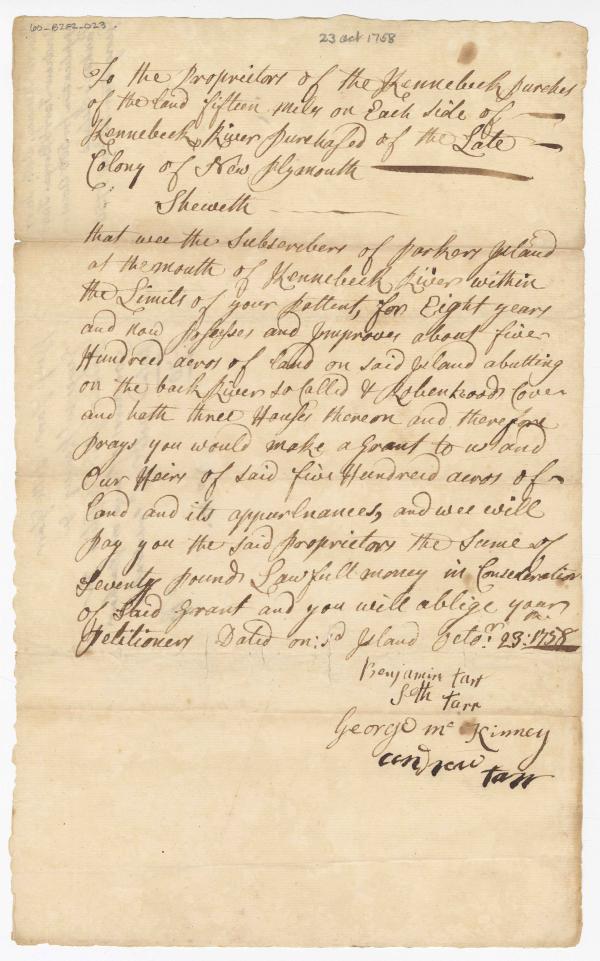 60-B2F2-023
23 oct 1758
To the Proprietors of the Kennebeck Purches
of the Land fifteen mels on Each side of
Kennebeck River Purchased of the Late
Colony of New Plymouth
Sheweth
that wee the Subscribers of Parkers Island
at the mouth of Kennebeck River within
the Limits of your Pattent, for Eight years
and now Possesses and Improves about five
Hundred acros of Land on said Island abutting
on the back River so Called & Robenhoods Cove
and hath three Houses thereon and therefore
Prays you would make a Grant to us and
Our Heirs of said five Hundreid acros of
Land and its appurtnances, and wee will
Pay you the said Proprietors the Sume of
Seventy Pounds Lawfull money in Consederation
of Said Grant and you will ablige your
Petitioners Dated on: sd Island Octor. 23: 1758
Benjamin tarr
Seth tarr
George mc Kinney
andrew tarr